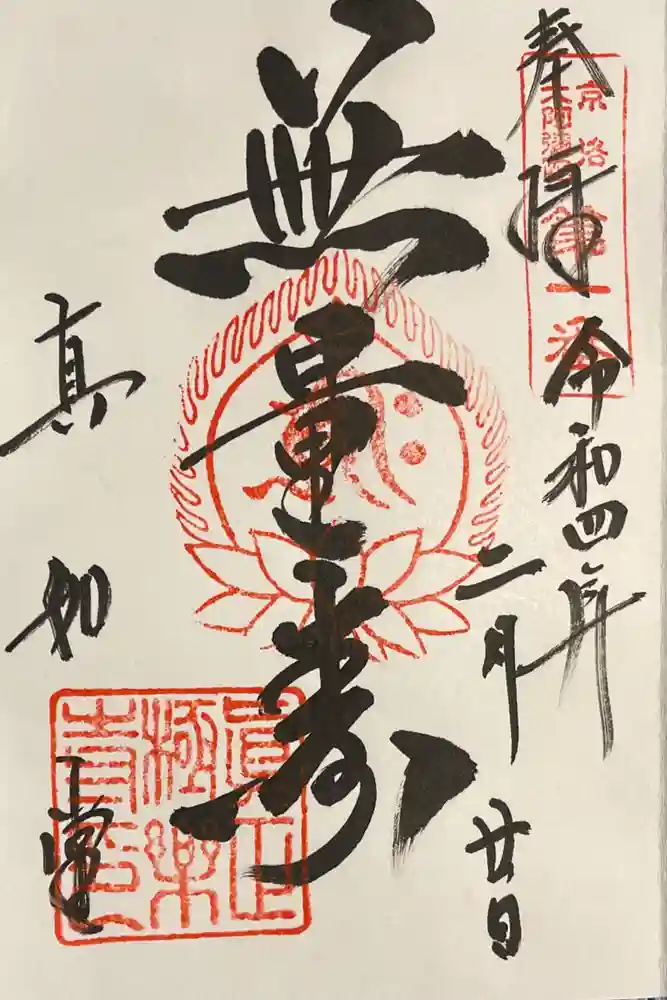 奉拝
京洛
六阿彌陀
第一番
令和四年
二月廿日
無量寿
真如堂
眞正
極樂
寺印